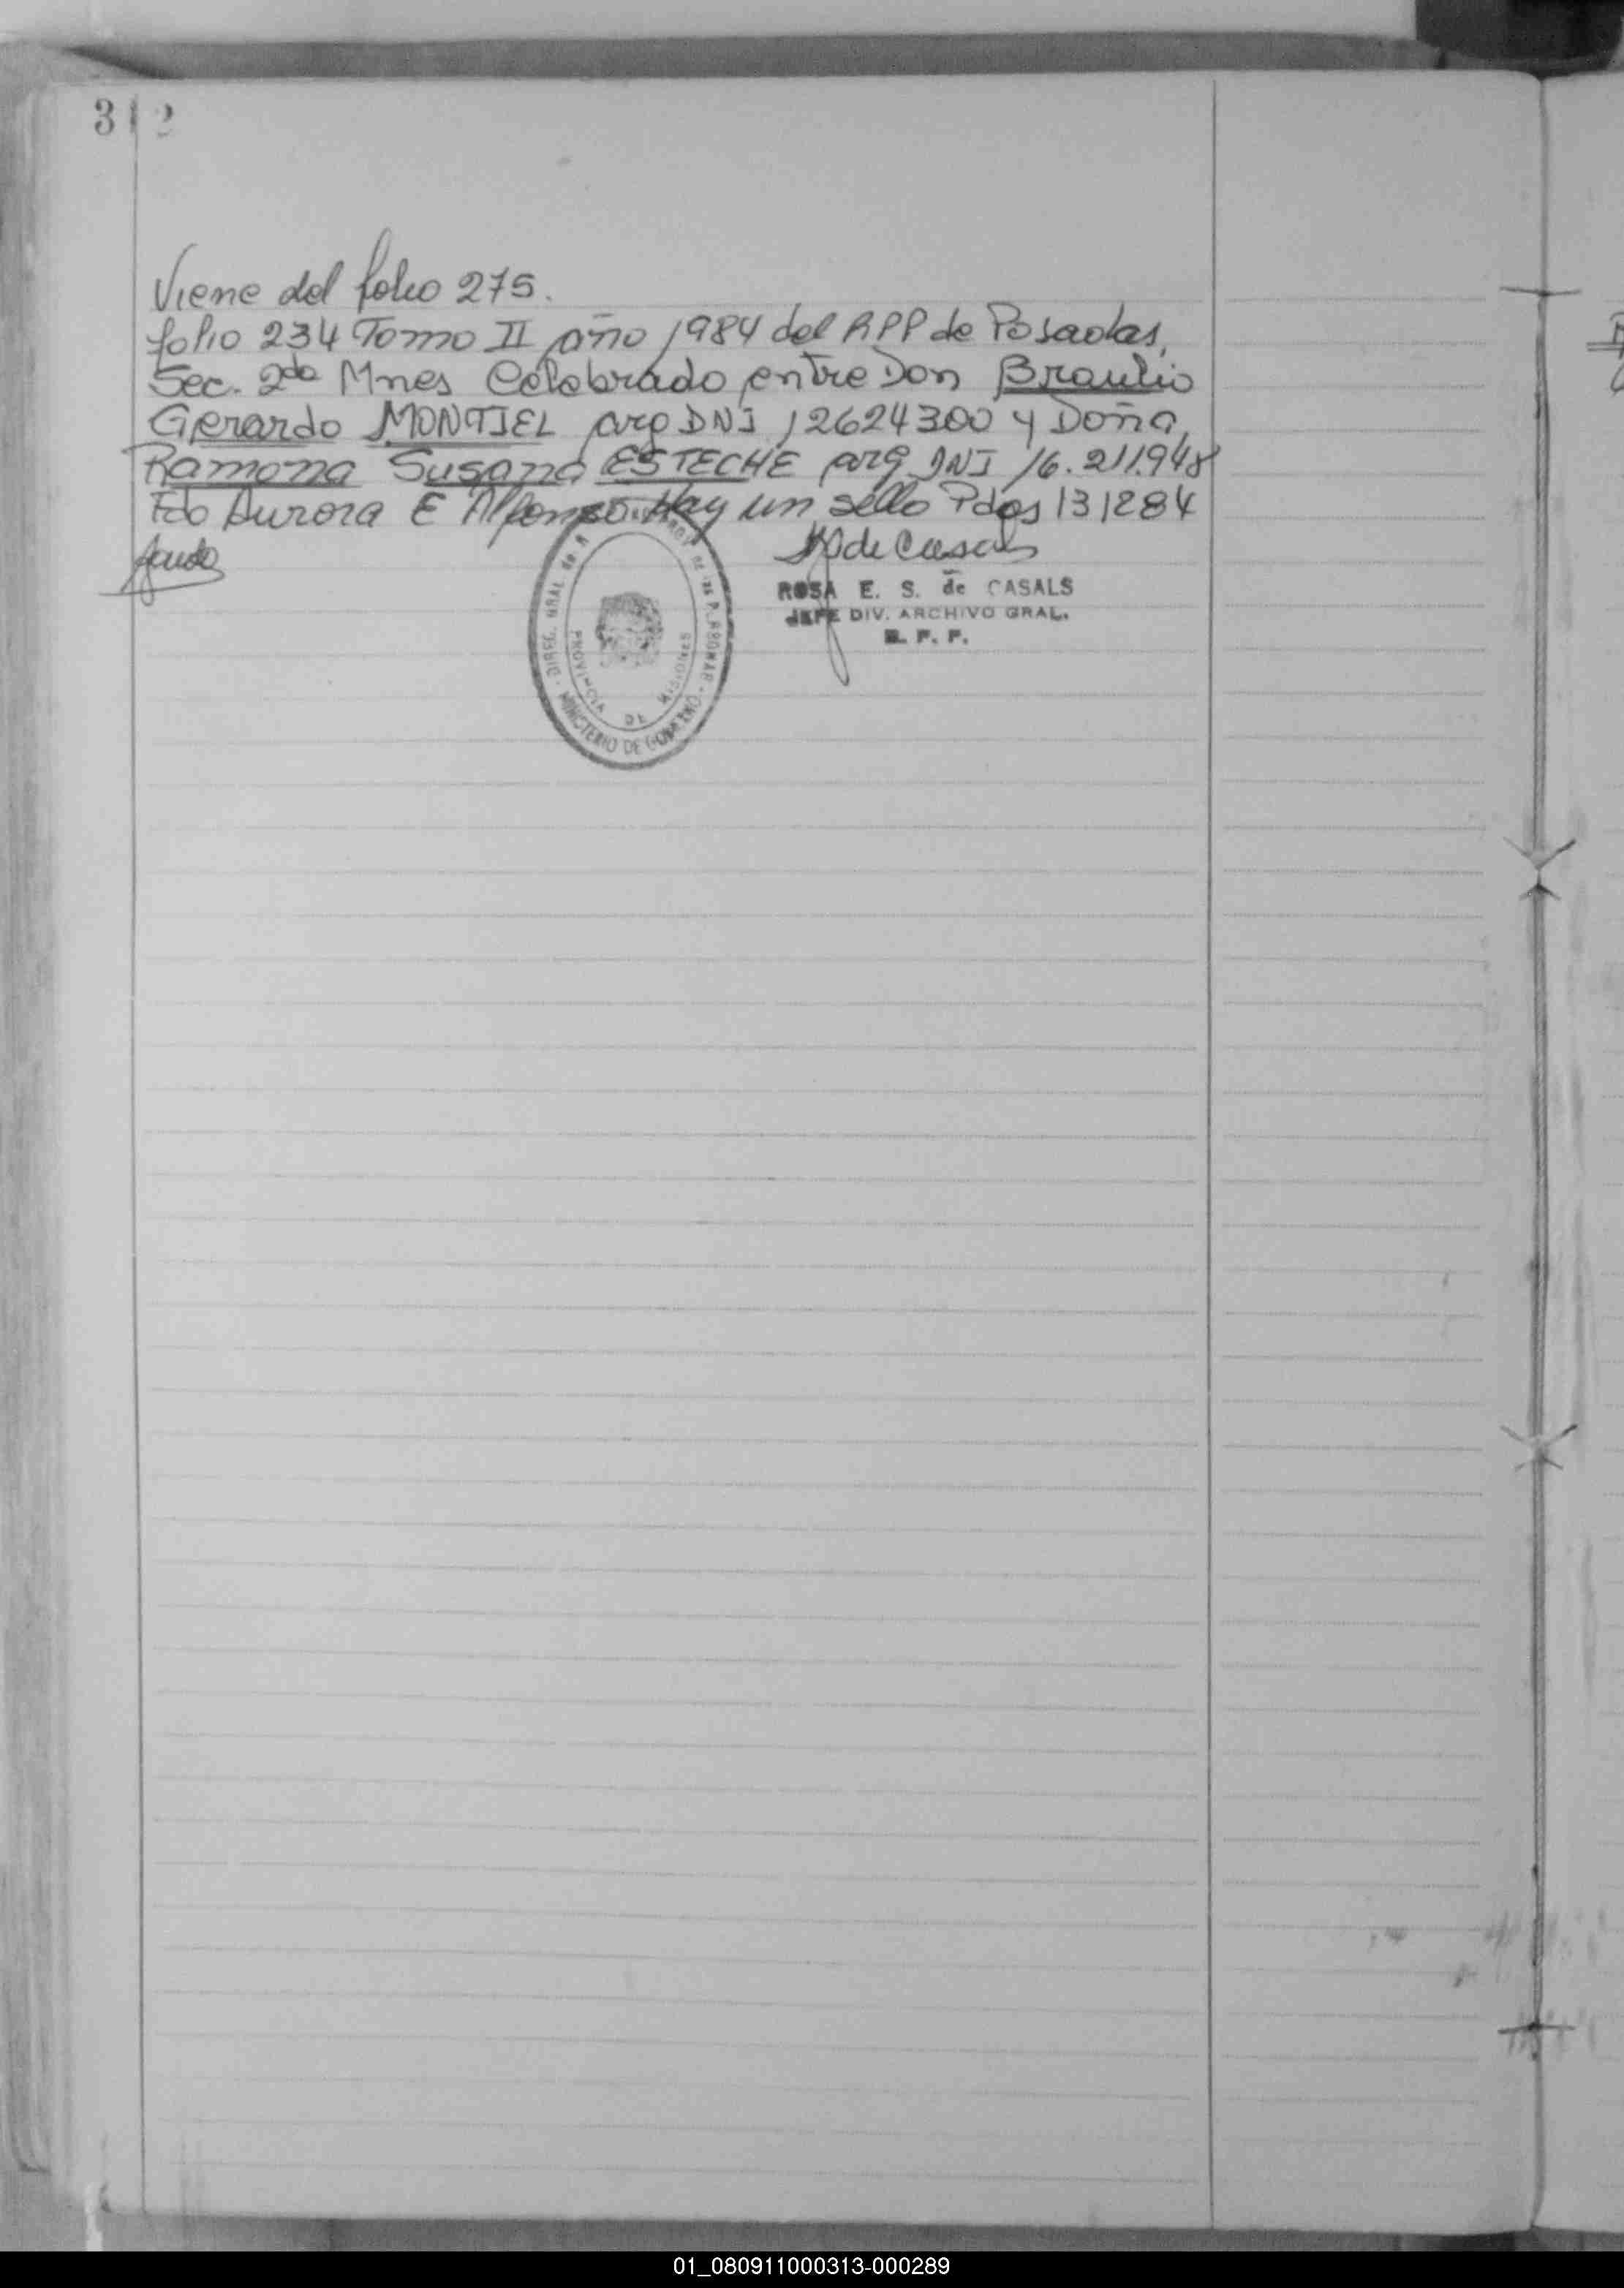 312
Viene del folio 275.
folio 234 Tomo II año 1984 del RPP de Posadas,
Sec. 2da Mnes Celebrado entre Don Braulio
Gerardo MONTIEL arg DNI 12624300 y Doña
Ramona Susana ESTECHE arg DNI 16.211.948
Fdo Aurora E Alfonzo Hay un sello Pdas 131284
de Casals
ROSA E. S. de CASALS
JEFE DIV. ARCHIVO GRAL.
R. P. P.
DIREC. GRAL de las P.
MINISTERIO DE GOBIERNO
PROVINCIA DE MISIONES
01_080911000313-000289